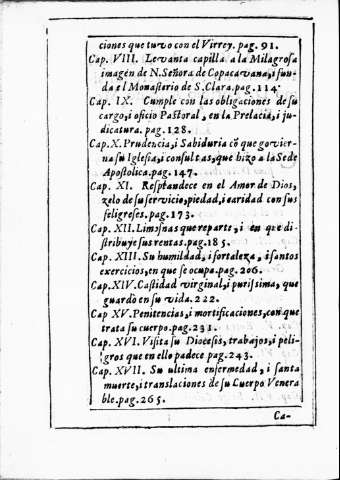 ciones que tuvo con el Virrey. pag. 91.
Cap. VIII. Levanta capilla a la Milagrosa
imagen de N. Señora de Copacavana, i fun-
da el Monasterio de S. Clara. pag. 114.
Cap. IX. Cumple con las obligaciones de su
cargo, i oficio Pastoral, en la Prelacia, i ju-
dicatura. pag. 128.
Cap. X. Prudencia, i Sabiduria cõ que govier-
na su Iglesia, i consultas, que hizo a la Sede
Apostolica. pag. 147.
Cap. XI. Resplandece en el Amor de Dios,
zelo de su servicio, piedad, i caridad con sus
feligreses. pag. 173.
Cap. XII. Limosnas que reparte, i en que di-
stribuye sus rentas. pag. 185.
Cap. XIII. Su humildad, i fortaleza, i santos
exercicios, en que se ocupa. pag. 206.
Cap. XIV. Castidad virginal, i purissima, que
guardò en su vida. 222.
Cap XV. Penitencias, i mortificaciones, con que
trata su cuerpo. pag. 231.
Cap. XVI. Visita su Diocesis, trabajos, i peli-
gros que en ello padece pag. 243.
Cap. XVII. Su ultima enfermedad, i santa
muerte, i translaciones de su Cuerpo Venera
ble. pag. 265.
Ca-